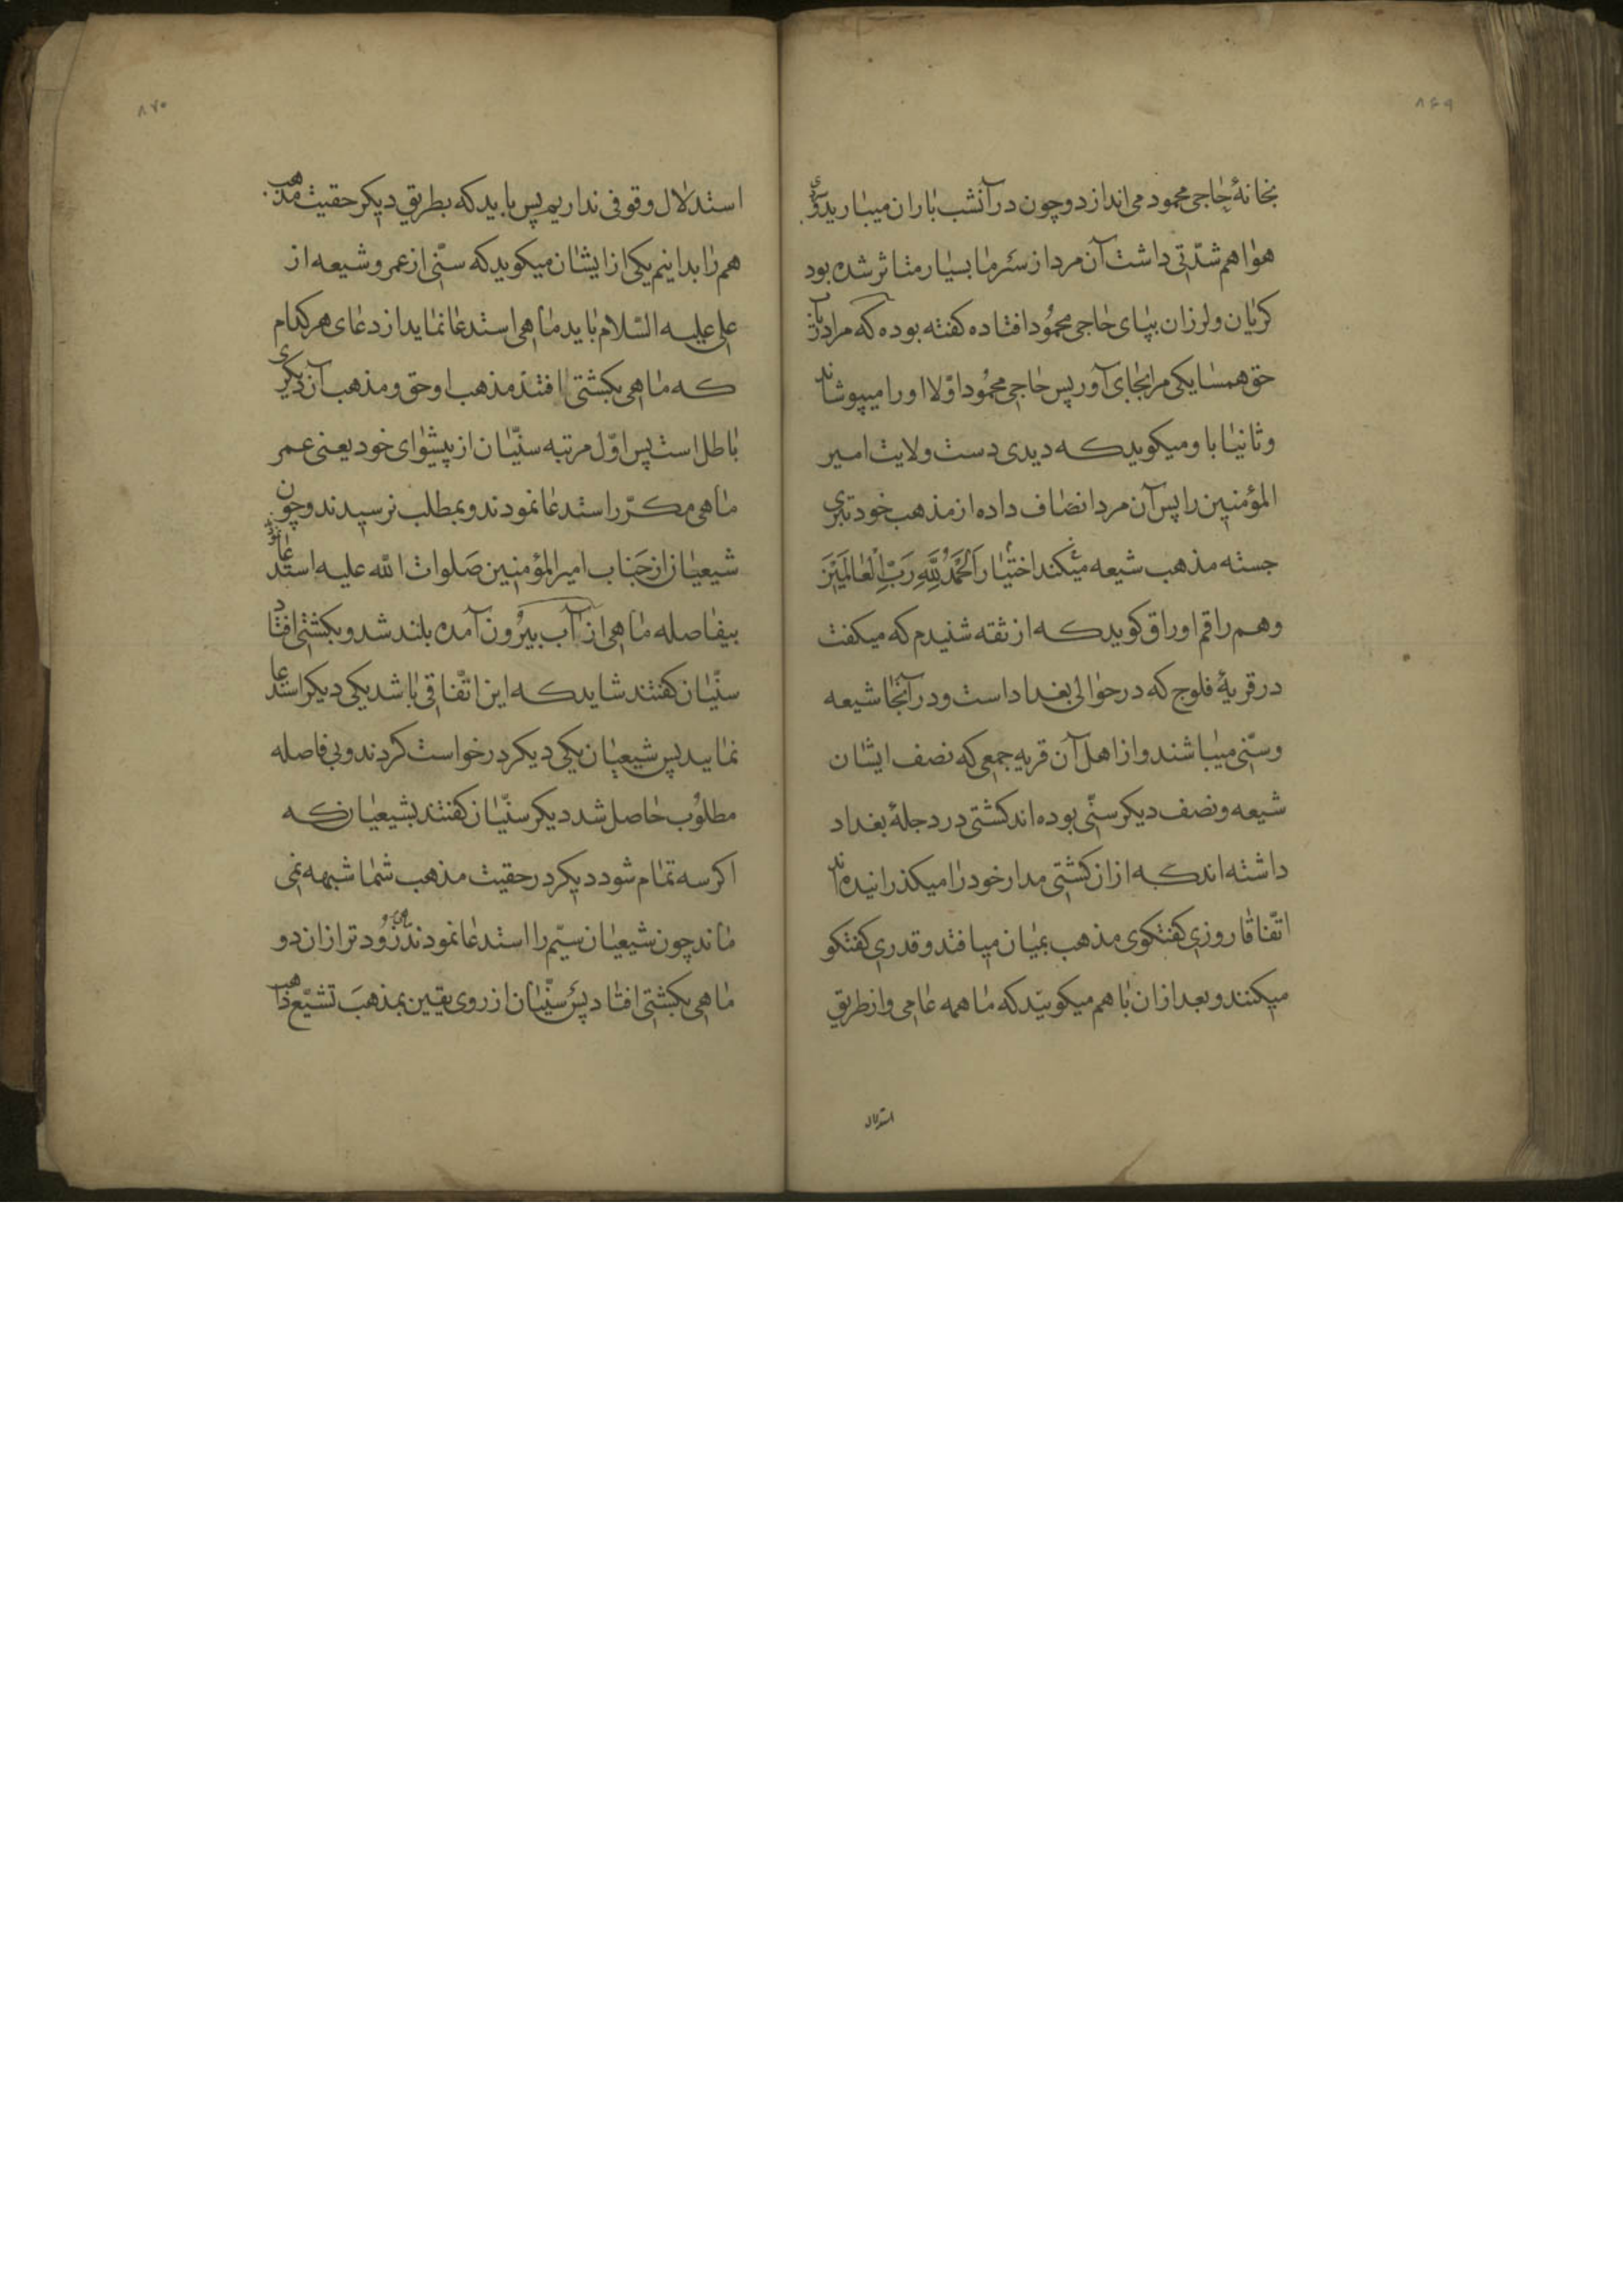 ۸۶۹
بخانهٔ حاجی محمود می اندازد و چون در آنشب باران میبارید و سردی
هوا هم شدّتی داشت آن مرد از سرما بسیار متاثر شده بود
کریان و لرزان بپای حاجی محمود افتاده کفته بوده که مرا دریاب
حق همسایکی مرا بجای آور پس حاجی محمود اوّلا او را میپوشاند
و ثانیا با و میکوید که دیدی دست ولایت امیر
المؤمنین را پس آن مرد انصاف داده از مذهب خود تبری
جسته مذهب شیعه میکند اختیار اَلحَمدُ لِلّهِ رَبِّ العالَمینَ
و هم راقم اوراق کوید که از ثقه شنیدم که میکفت
در قریهٔ فلوج که در حوالی بغداد است و در آنجا شیعه
و سنّی میباشند و از اهل آن قریه جمعی که نصف ایشان
شیعه و نصف دیکر سنّی بوده اند کشتی در دجلهٔ بغداد
داشته اند که از ان کشتی مدار خود را میکذرانیده اند
اتّفاقا روزی کفتکوی مذهب بمیان میافتد و قدری کفتکو
میکنند و بعد از ان با هم میکویند که ما همه عامی و از طریق
استدلال
۸۷۰
استدلال وقوفی نداریم پس باید که بطریق دیکر حقیت مذهب
هم را بدانیم یکی از ایشان میکوید که سنّی از عمر و شیعه از
علی علیه السّلام باید ماهی استدعا نماید از دعای هر کدام
که ماهی بکشتی افتد مذهب او حق و مذهب آن دیکری
باطل است پس اوّل مرتبه سنّیان از پیشوای خود یعنی عمر
ماهی مکرّر استدعا نمودند و بمطلب نرسیدند و چون
شیعیان از جناب امیر المؤمنین صلوات الله علیه استدعا نمودند
بیفاصله ماهی از آب بیرون آمده بلند شد و بکشتی افتاد
سنّیان کفتند شاید که این اتّفاقی باشد یکی دیکر استدعا
نمایید پس شیعیان یکی دیکر درخواست کردند و بی فاصله
مطلوب حاصل شد دیکر سنّیان کفتند بشیعیان که
اکر سه تمام شود دیکر در حقیت مذهب شما شبهه نمی
ماند چون شیعیان سیّم را استدعا نمودند زود تر از ان دو
ماهی بکشتی افتاد پس سنّیان از روی یقین بمذهب تشیّع